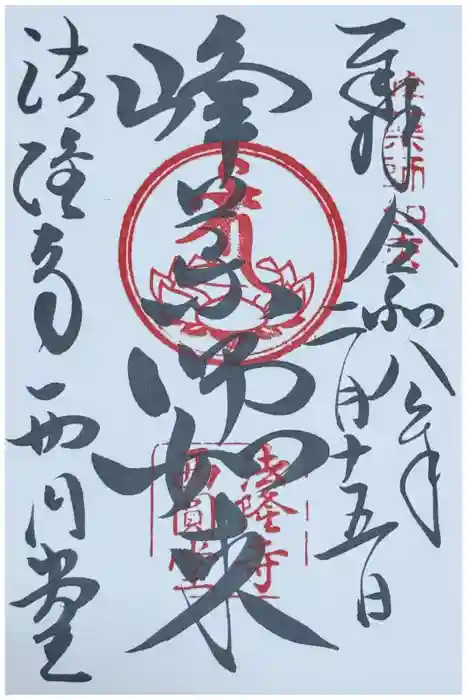 奉拝
令和八年
二月十五日
峰の薬師如来
法隆寺
西円堂
法隆寺
西圓堂